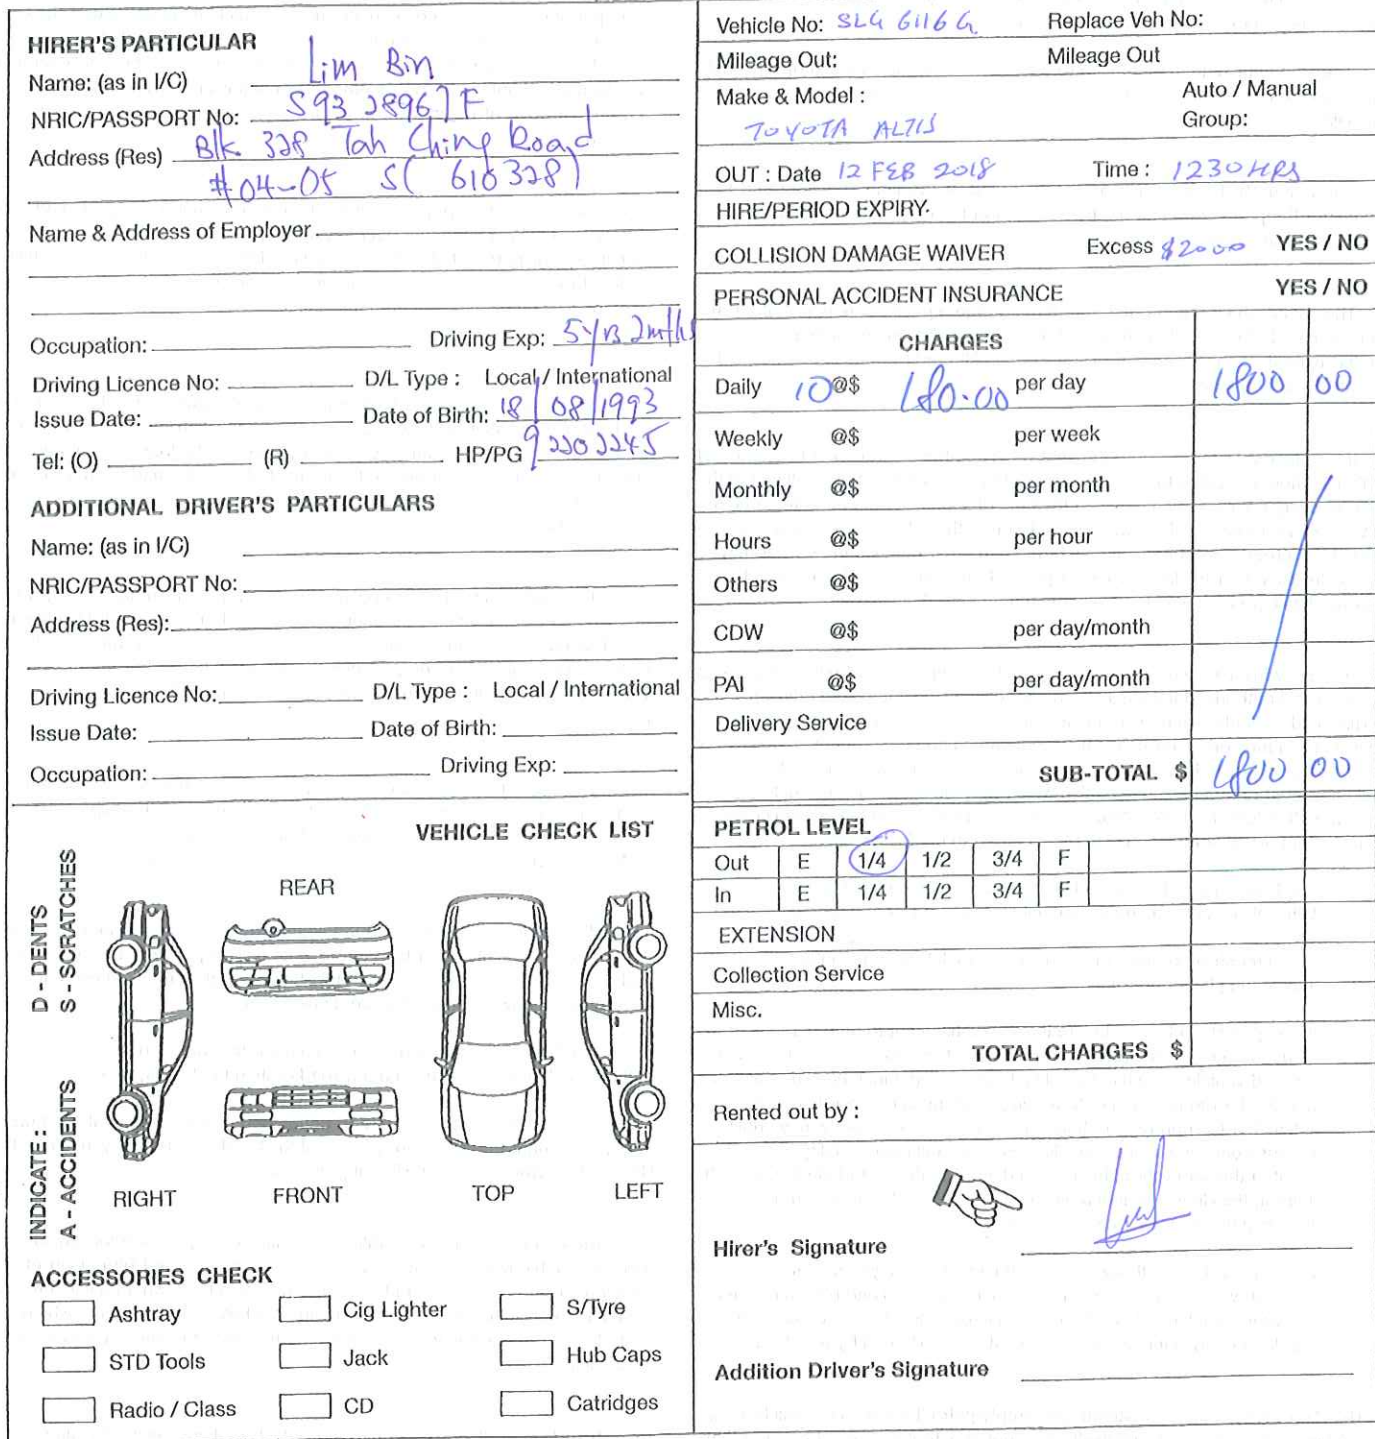 HIRER'S PARTICULAR
Name: (as in I/C) Lim Bin
NRIC/PASSPORT No: S9328967F
Address (Res) Blk 328 Tah Ching Road
#04-05 S( 610328)
Name & Address of Employer
Occupation: Driving Exp: 5yrs 2mths
Driving Licence No: D/L Type : Local / International
Issue Date: Date of Birth: 18/08/1993
Tel: (O) (R) HP/PG 92202245
ADDITIONAL DRIVER'S PARTICULARS
Name: (as in I/C)
NRIC/PASSPORT No:
Address (Res):
Driving Licence No: D/L Type : Local / International
Issue Date: Date of Birth:
Occupation: Driving Exp:
VEHICLE CHECK LIST
INDICATE :
D - DENTS
S - SCRATCHES
A - ACCIDENTS
REAR
RIGHT FRONT TOP LEFT
ACCESSORIES CHECK
Ashtray Cig Lighter S/Tyre
STD Tools Jack Hub Caps
Radio / Class CD Catridges
Vehicle No: SLG 6116 G Replace Veh No:
Mileage Out: Mileage Out
Make & Model : Auto / Manual
TOYOTA ALTIS Group:
OUT : Date 12 FEB 2018 Time : 1230HRS
HIRE/PERIOD EXPIRY.
COLLISION DAMAGE WAIVER Excess $2000 YES / NO
PERSONAL ACCIDENT INSURANCE YES / NO
CHARGES
Daily 10 @$ 180.00 per day 1800 00
Weekly @$ per week
Monthly @$ per month
Hours @$ per hour
Others @$
CDW @$ per day/month
PAI @$ per day/month
Delivery Service
SUB-TOTAL $ 1800 00
PETROL LEVEL
Out E 1/4 1/2 3/4 F
In E 1/4 1/2 3/4 F
EXTENSION
Collection Service
Misc.
TOTAL CHARGES $
Rented out by :
Hirer's Signature
Addition Driver's Signature